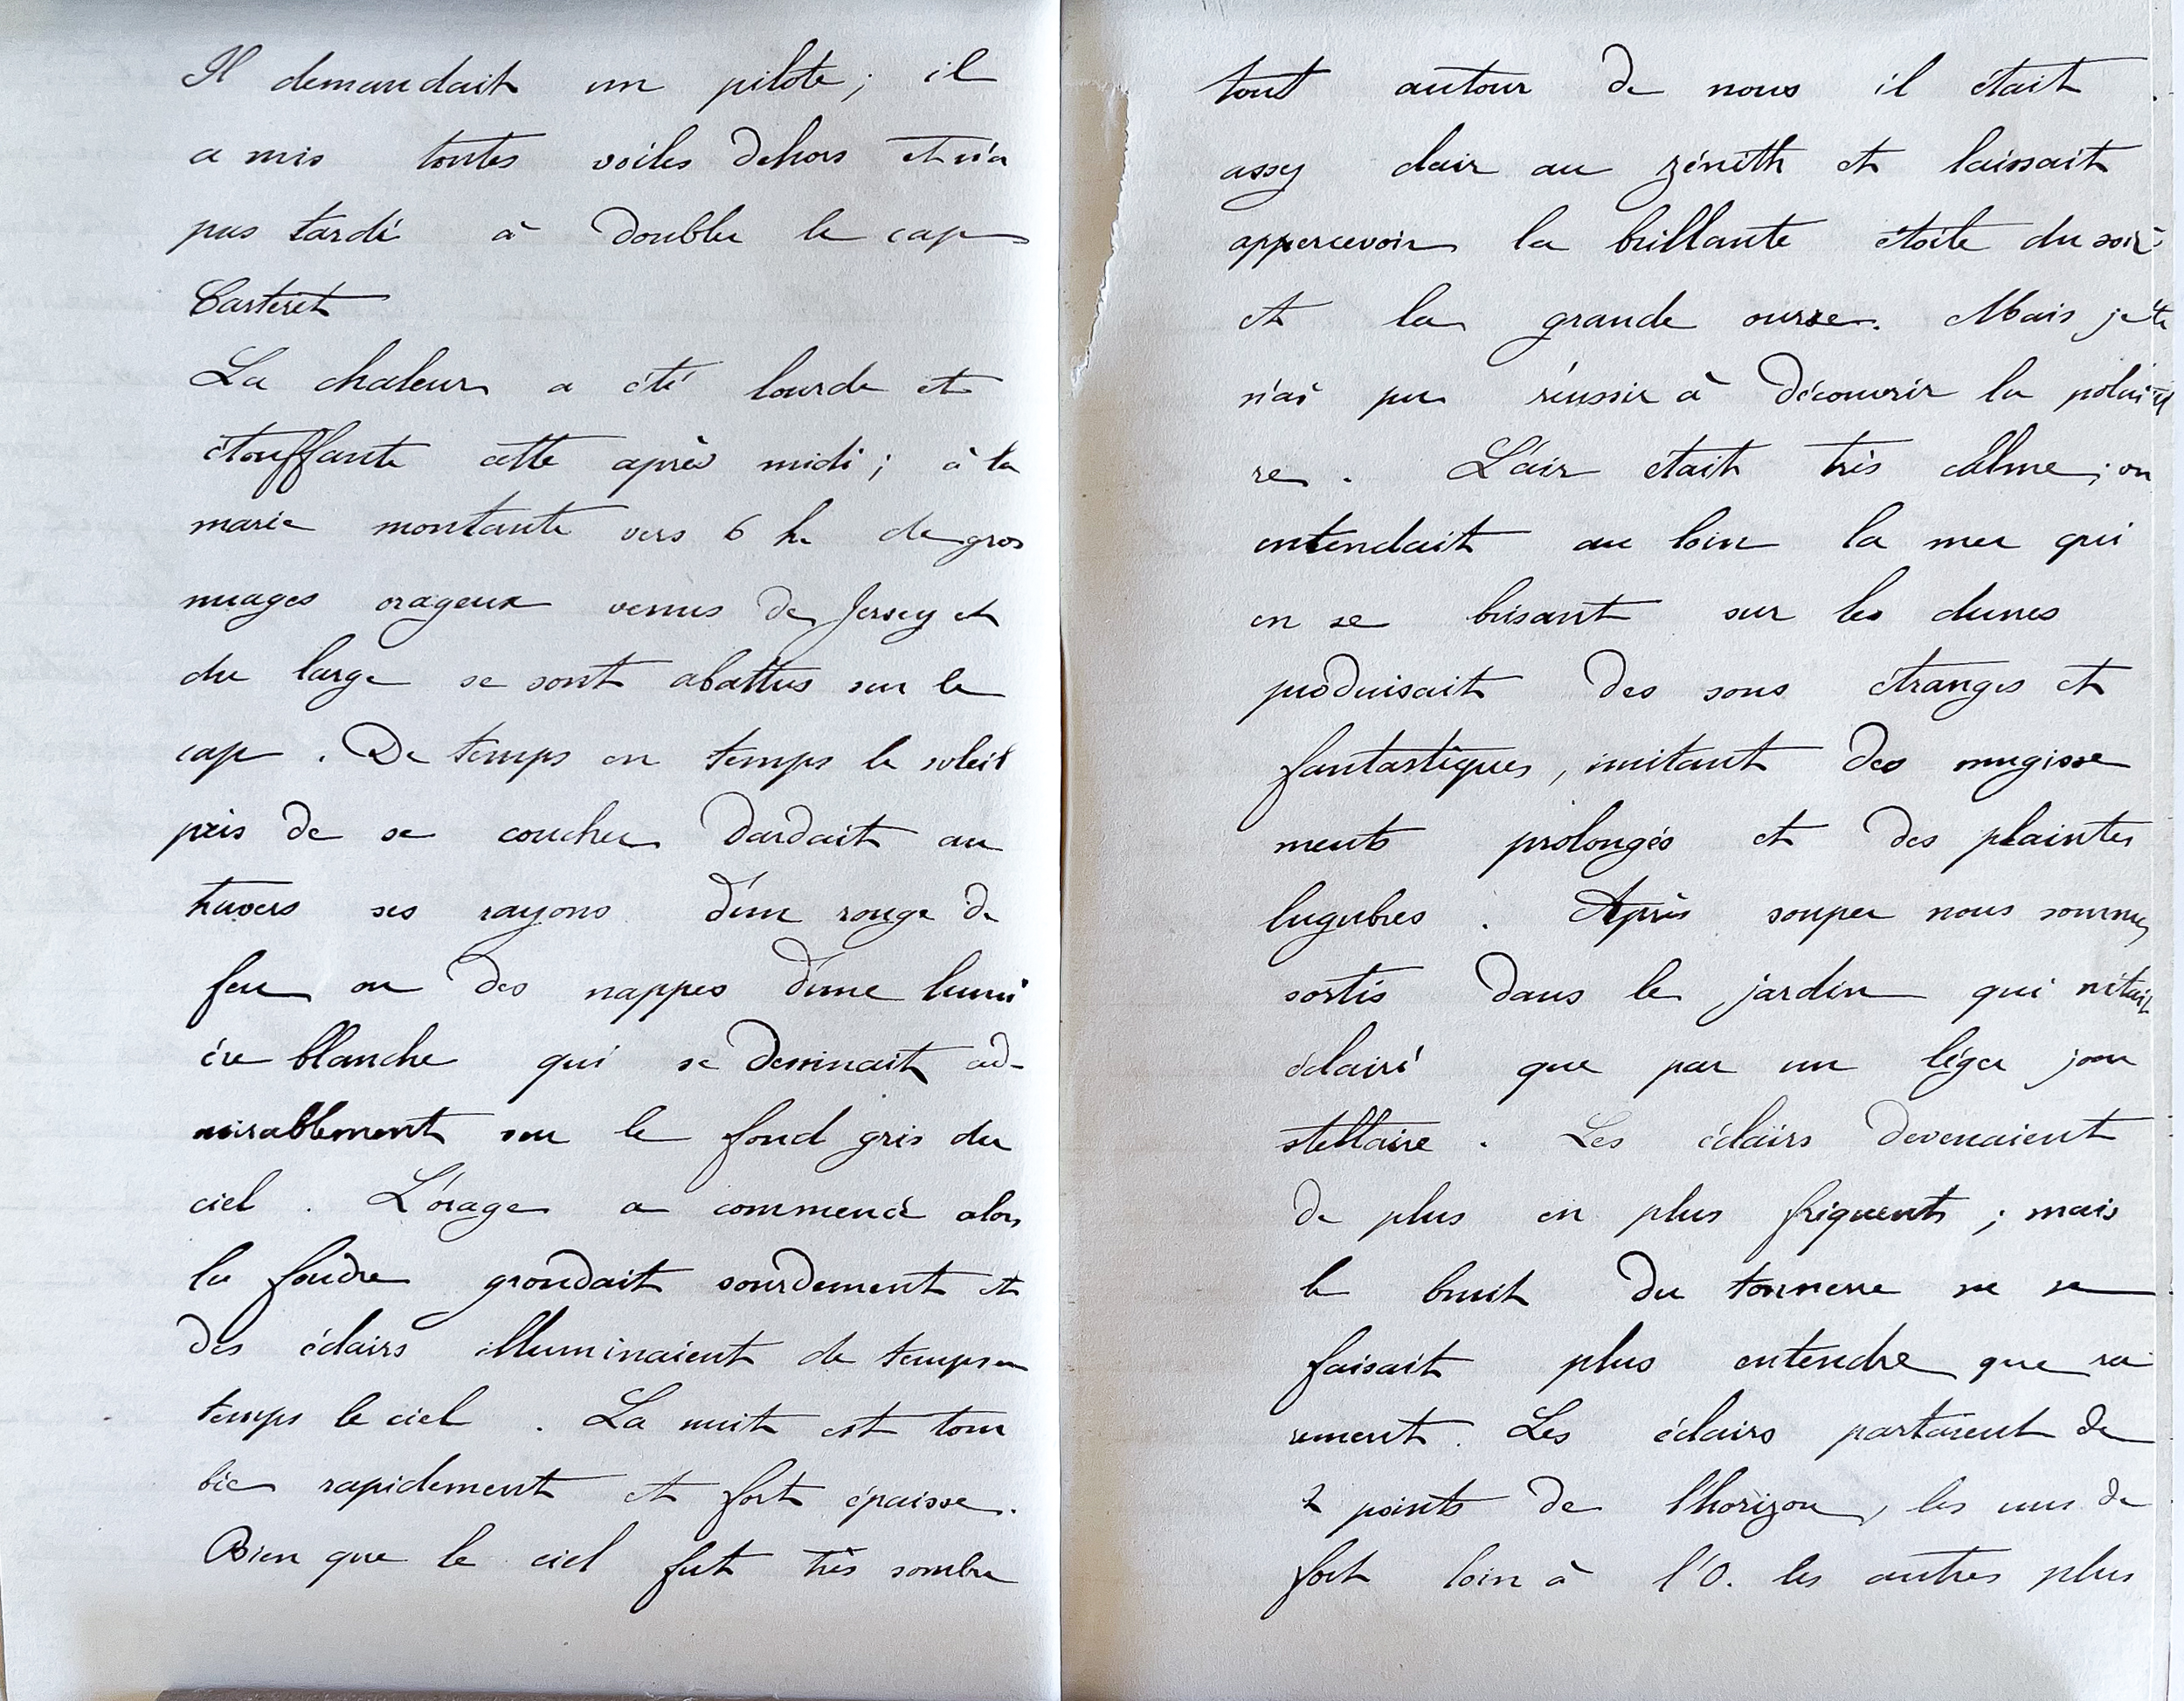 Il demandait un pilote ; il
a mis toutes voiles dehors et n'a
pas tardé à doubler le cap
Carteret
La chaleur a été lourde et
étouffante cette après midi ; à la
marée montante vers 6 h. de gros
nuages orageux venus de Jersey et
du large se sont abattus sur le
cap . De temps en temps le soleil
près de se coucher dardait au
travers ses rayons d'un rouge de
feu ou des nappes d'une lumi
ère blanche qui se dessinait ad-
mirablement sur le fond gris du
ciel . L'orage a commencé alors
la foudre grondait sourdement et
des éclairs illuminaient de temps en
temps le ciel . La nuit est tom
bée rapidement et fort épaisse.
Bien que le ciel fut très sombre
tout autour de nous il était
assez clair au zénith et laissait
appercevoir la brillante étoile du soir
et la grande ourse. Mais je
n'ai pu réussir à découvrir la polai
re . L'air était très calme ; on
entendait au loin la mer qui
en se brisant sur les dunes
produisait des sons étranges et
fantastiques, imitant des mugisse
ments prolongés et des plaintes
lugubres . Après souper nous sommes
sortis dans le jardin qui n'était
éclairé que par un léger jour
stellaire . Les éclairs devenaient
de plus en plus fréquents ; mais
le bruit du tonnerre ne se
faisait plus entendre que ra
rement. Les éclairs partaient de
2 points de l'horizon, les uns de
fort loin à l'O. les autres plus